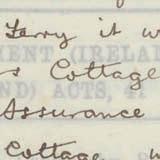 Terry it w
MENT (IRELAN
s Cottage
ND) ACTS, 41
Assurance
Cottage